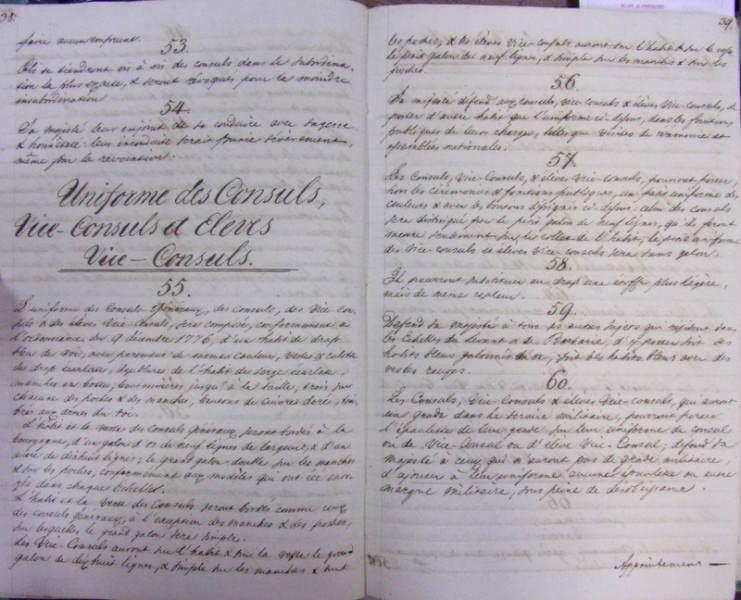 38.
faire aucun emprunt.
53.
Ils se tiendront vis à vis des consuls dans la subordina-
tion la plus exacte, & seront révoqués pour la moindre
insubordination
54.
Sa majesté leur enjoint de se conduire avec sagesse
& honnêteté leur inconduite serait punie sévèrement,
même par la révocation.
Uniforme des Consuls,
Vice-Consuls et Eleves
Vice-Consuls.
55.
L'uniforme des Consuls Généraux, des consuls, des Vice con-
suls & des éleves Vice-Consuls, sera composé, conformément à
l'ordonnance du 9 décembre 1776, d'un habit de drap
bleu de roi, avec parement de même couleur, veste & culotte
de drap écarlate, doublure de l'habit de serge écarlate,
manches en bottes, boutonnieres jusqu'à la taille, trois sur
chacune des poches & des manches, boutons de cuivre doré, tim-
brés aux armes du roi.
L'habit et la veste des Consuls généraux seront bordés à la
bourgogne, d'un galon d'or de neuf lignes de largeur, & d'un
autre de dixhuit lignes; le grand galon double sur les manches
& sur les poches, conformément aux modeles qui ont été envo-
yés dans chaque Echelle.
L'habit et la veste des Consuls seront bordés comme ceux
des Consuls généraux, à l'exception des manches & des poches,
sur lesquelles le grand galon sera simple.
Les Vice-Consuls auront sur l'habit & sur la veste le grand
galon de dix huit lignes, & simple sur les manches & sur
39.
les poches, & les éleves Vice-Consuls auront sur l'habit & sur la veste
le petit galon de neuf lignes, & simple sur les manches & sur les
poches.
56
Sa majesté défend aux Consuls, vice-consuls & éleves Vice-Consuls, de
porter d'autre habit que l'uniforme ci-dessus, dans les fonctions
publiques de leurs charges, telles que visites de cérémonie et
assemblées nationales.
57.
Les Consuls, Vice-Consuls, & éleves Vice-Consuls, pourront porter,
hors les cérémonies & fonctions publiques, un petit uniforme des
couleurs & avec les boutons désignés ci-dessus: celui des consuls
sera distingué par le petit galon de neuf lignes, qu'ils feront
mettre seulement sur le collet de l'habit, le petit uniforme
des Vice-consuls et éleves Vice-consuls sera sans galon.
58.
Ils pourront substituer au drap une étoffe plus légère,
mais de même couleur.
59.
Défend sa majesté à tous ses autres sujets qui résident dans
les Echelles du Levant & de Barbarie, d'y porter soit des
habits bleus galonnés d'or, soit des habits bleus avec des
vestes rouges.
60.
Les Consuls, Vice-Consuls & éleves Vice-consuls, qui auront
un grade dans le service militaire, pourront porter
l'épaulette de leur grade sur leur uniforme de consul
ou de Vice-Consul ou d'Eleve Vice-Consul; défend sa
majesté à ceux qui n'auront pas de grade militaire
d'ajouter à leur uniforme aucune épaulette ou autre
marque militaire, sous peine de desobeissance.
Appointemens